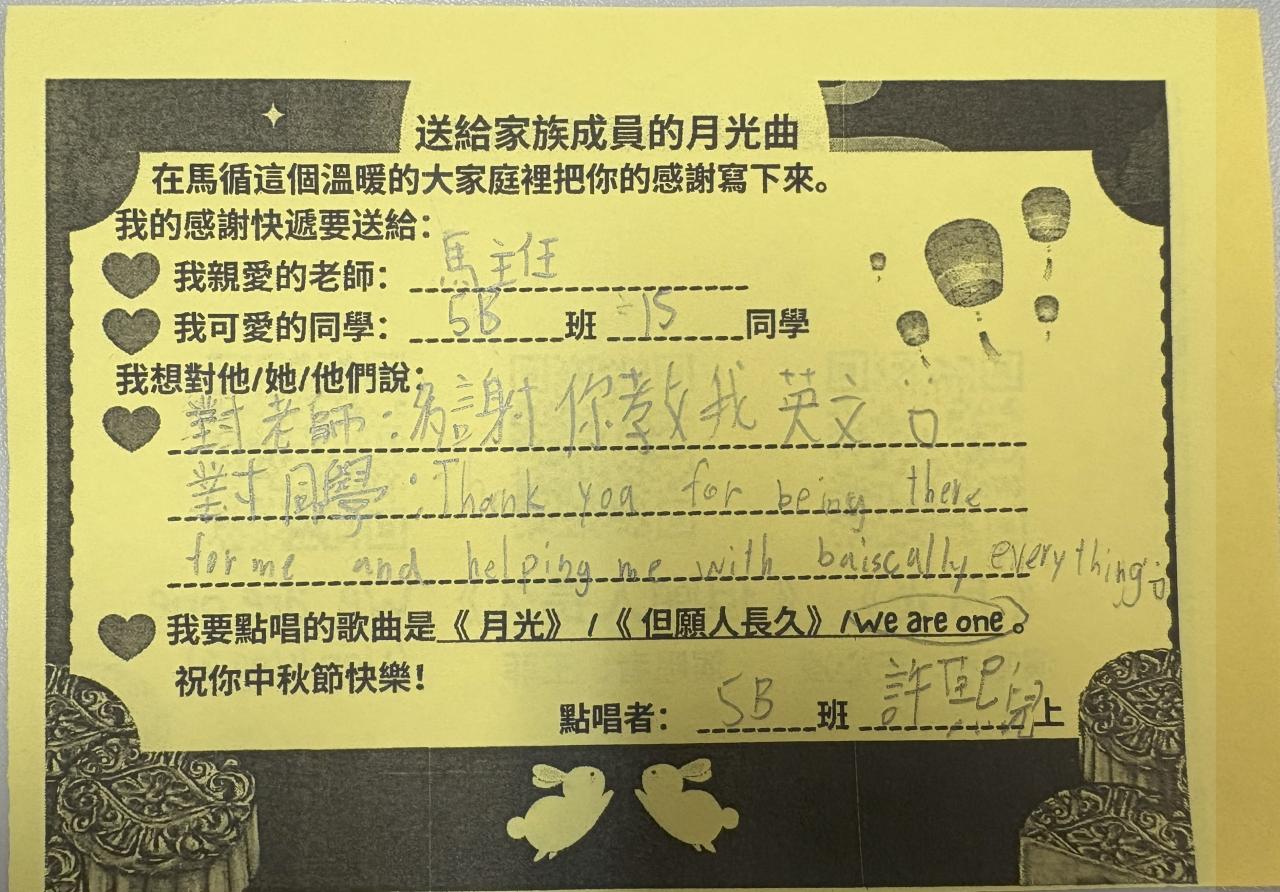 送給家族成員的月光曲
在馬循這個溫暖的大家庭裡把你的感謝寫下來。
我的感謝快遞要送給：
我親愛的老師：馬主任
我可愛的同學：5B班 15同學
我想對他/她/他們說：
對老師：謝你教我英文
對同學：Thank you for being there
for me and helping me with baiscally everything
我要點唱的歌曲是《月光》/《但願人長久》/We are one。
祝你中秋節快樂！
點唱者：5B班 許熙兒上